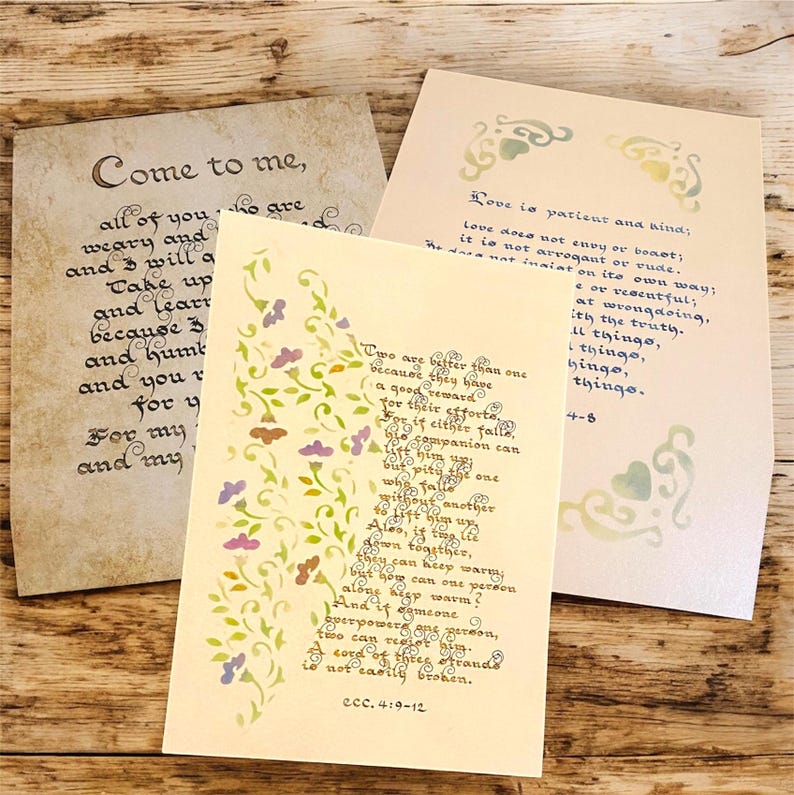 Come to me,
all of you who are
weary and
and I will g
Take up
and learn
because I
and humb
and you
for y
For my
and my
Love is patient and kind;
love does not envy or boast;
it is not arrogant or rude.
It does not insist on its own way;
e or resentful;
at wrongdoing,
ith the truth.
ll things,
things,
things,
things.
4-8
Two are better than one
because they have
a good reward
for their efforts.
For if either falls,
his companion can
lift him up;
but pity the one
who falls
without another
to lift him up.
Also, if two lie
down together,
they can keep warm;
but how can one person
alone keep warm?
And if someone
overpowers one person,
two can resist him.
A cord of three strands
is not easily broken.
ecc. 4:9-12